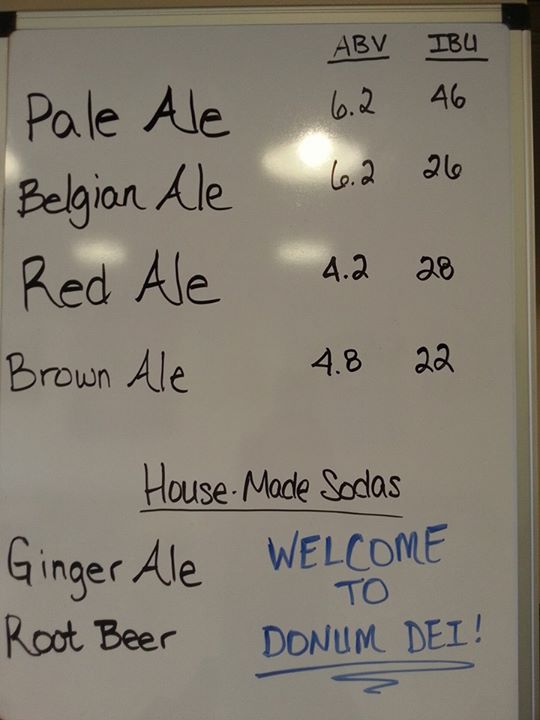 ABV IBU
Pale Ale 6.2 46
Belgian Ale 6.2 26
Red Ale 4.2 28
Brown Ale 4.8 22
House-Made Sodas
Ginger Ale
Root Beer
WELCOME
TO
DONUM DEI!